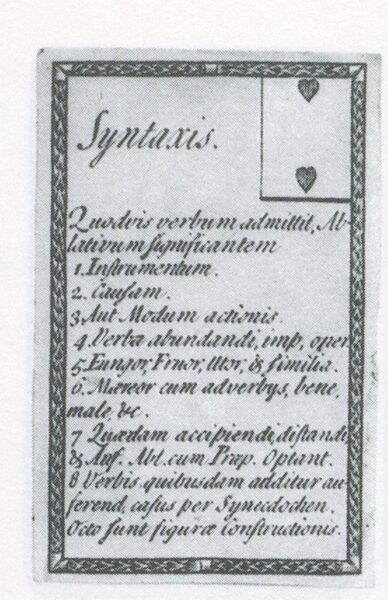 Syntaxis.
Quodvis verbum admittit, Ab-
lativum ſignificantem
1. Inſtrumentum.
2. Cauſam.
3. Aut Modum actionis
4. Verba abundandi, imp, oper.
5. Fungor, Fruor, Utor, & ſimilia.
6. Mæreor cum adverbys, bene,
male, &c.
7 Quædam accipiendi, diſtandi
& Auf. Abl. cum Præp. Optant.
8 Verbis quibusdam additur au-
ferend, caſus per Synecdochen.
Octo ſunt figuræ Conſtructionis.